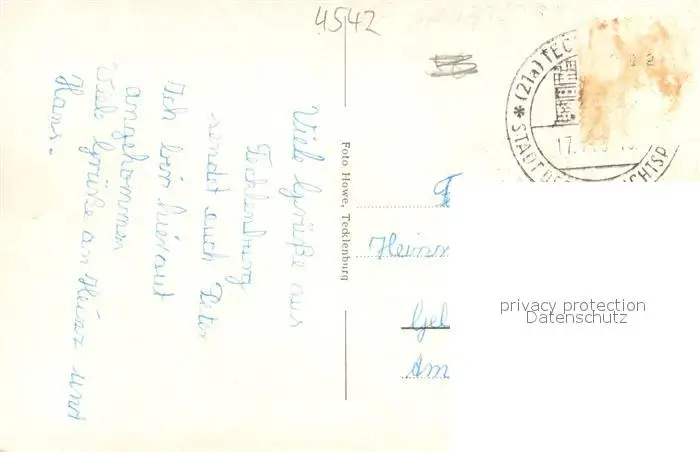 4542
Viele Grüße aus
Tecklenburg
sendet euch Peter
Ich bin hier gut
angekommen
Viele Grüße an Heinz und
Hans.
Foto Howe, Tecklenburg
* (21a) TEC
17.
STADT DE CHTSP
Heinr
Am
privacy protection
Datenschutz